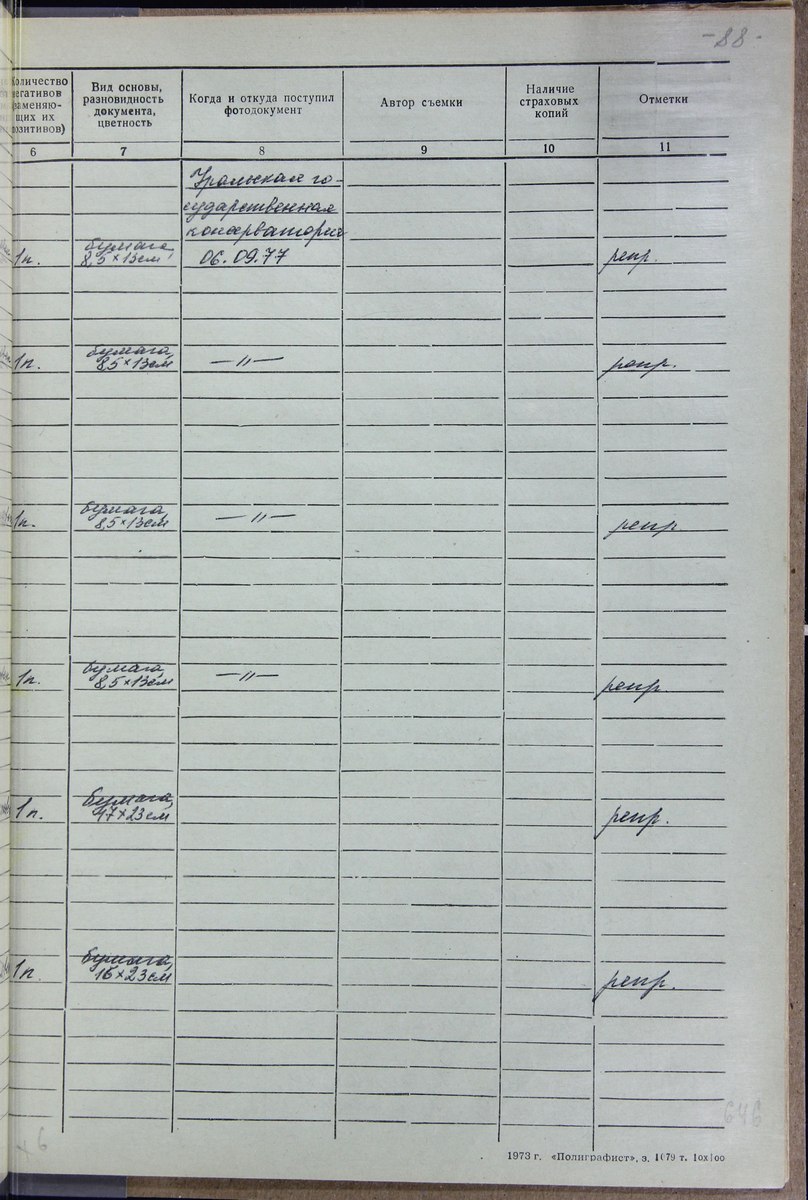 -88-
Количество
негативов
заменяю-
щих их
позитивов)
Вид основы,
разновидность
документа,
цветность
Когда и откуда поступил
фотодокумент
Автор съемки
Наличие
страховых
копий
Отметки
6
7
8
9
10
11
Уральская го-
сударственная
консерватория
1п.
бумага,
8,5×13см
06.09.77
репр.
1п.
бумага,
8,5×13см
—"—
репр.
1п.
бумага,
8,5×13см
—"—
репр
1п.
бумага,
8,5×13см
—"—
репр
1п.
бумага,
47×23см
репр.
1п
бумага,
16×23см
репр.
646
6
1973 г. «Полиграфист», з. 1079 т. 10х100